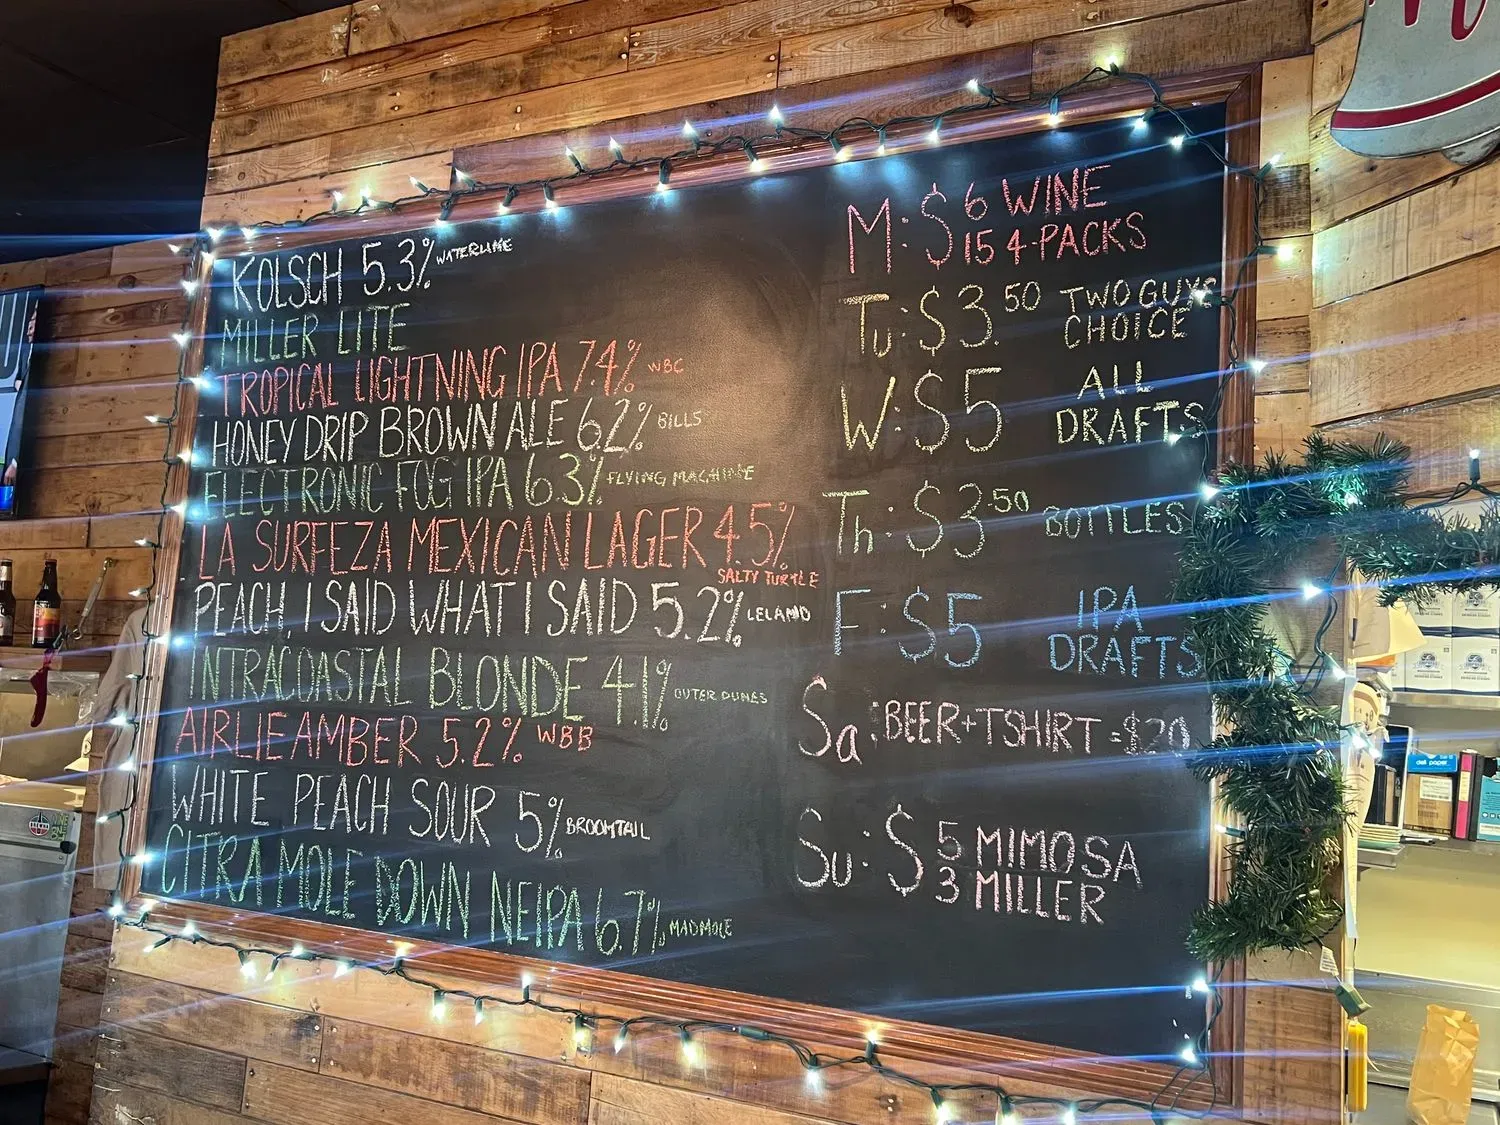 KOLSCH 5.3% WATERLINE
MILLER LITE
TROPICAL LIGHTNING IPA 7.4% WBC
HONEY DRIP BROWN ALE 6.2% BILLS
ELECTRONIC FOG IPA 6.3% FLYING MACHINE
LA SURFEZA MEXICAN LAGER 4.5%
SALTY TURTLE
PEACH, I SAID WHAT I SAID 5.2% LELAND
INTRACOASTAL BLONDE 4.1% OUTER DUNES
AIRLIE AMBER 5.2% WBB
WHITE PEACH SOUR 5% BROOMTAIL
CITRA MOLE DOWN NEIPA 6.7% MADMOLE
M: $ 6 WINE
15 4-PACKS
Tu: $3.50 TWO GUYS
CHOICE
W: $5 ALL
DRAFTS
Th: $3.50 BOTTLES
F: $5 IPA
DRAFTS
Sa: BEER+TSHIRT=$20
Su: $ 5 MIMOSA
3 MILLER
deli paper